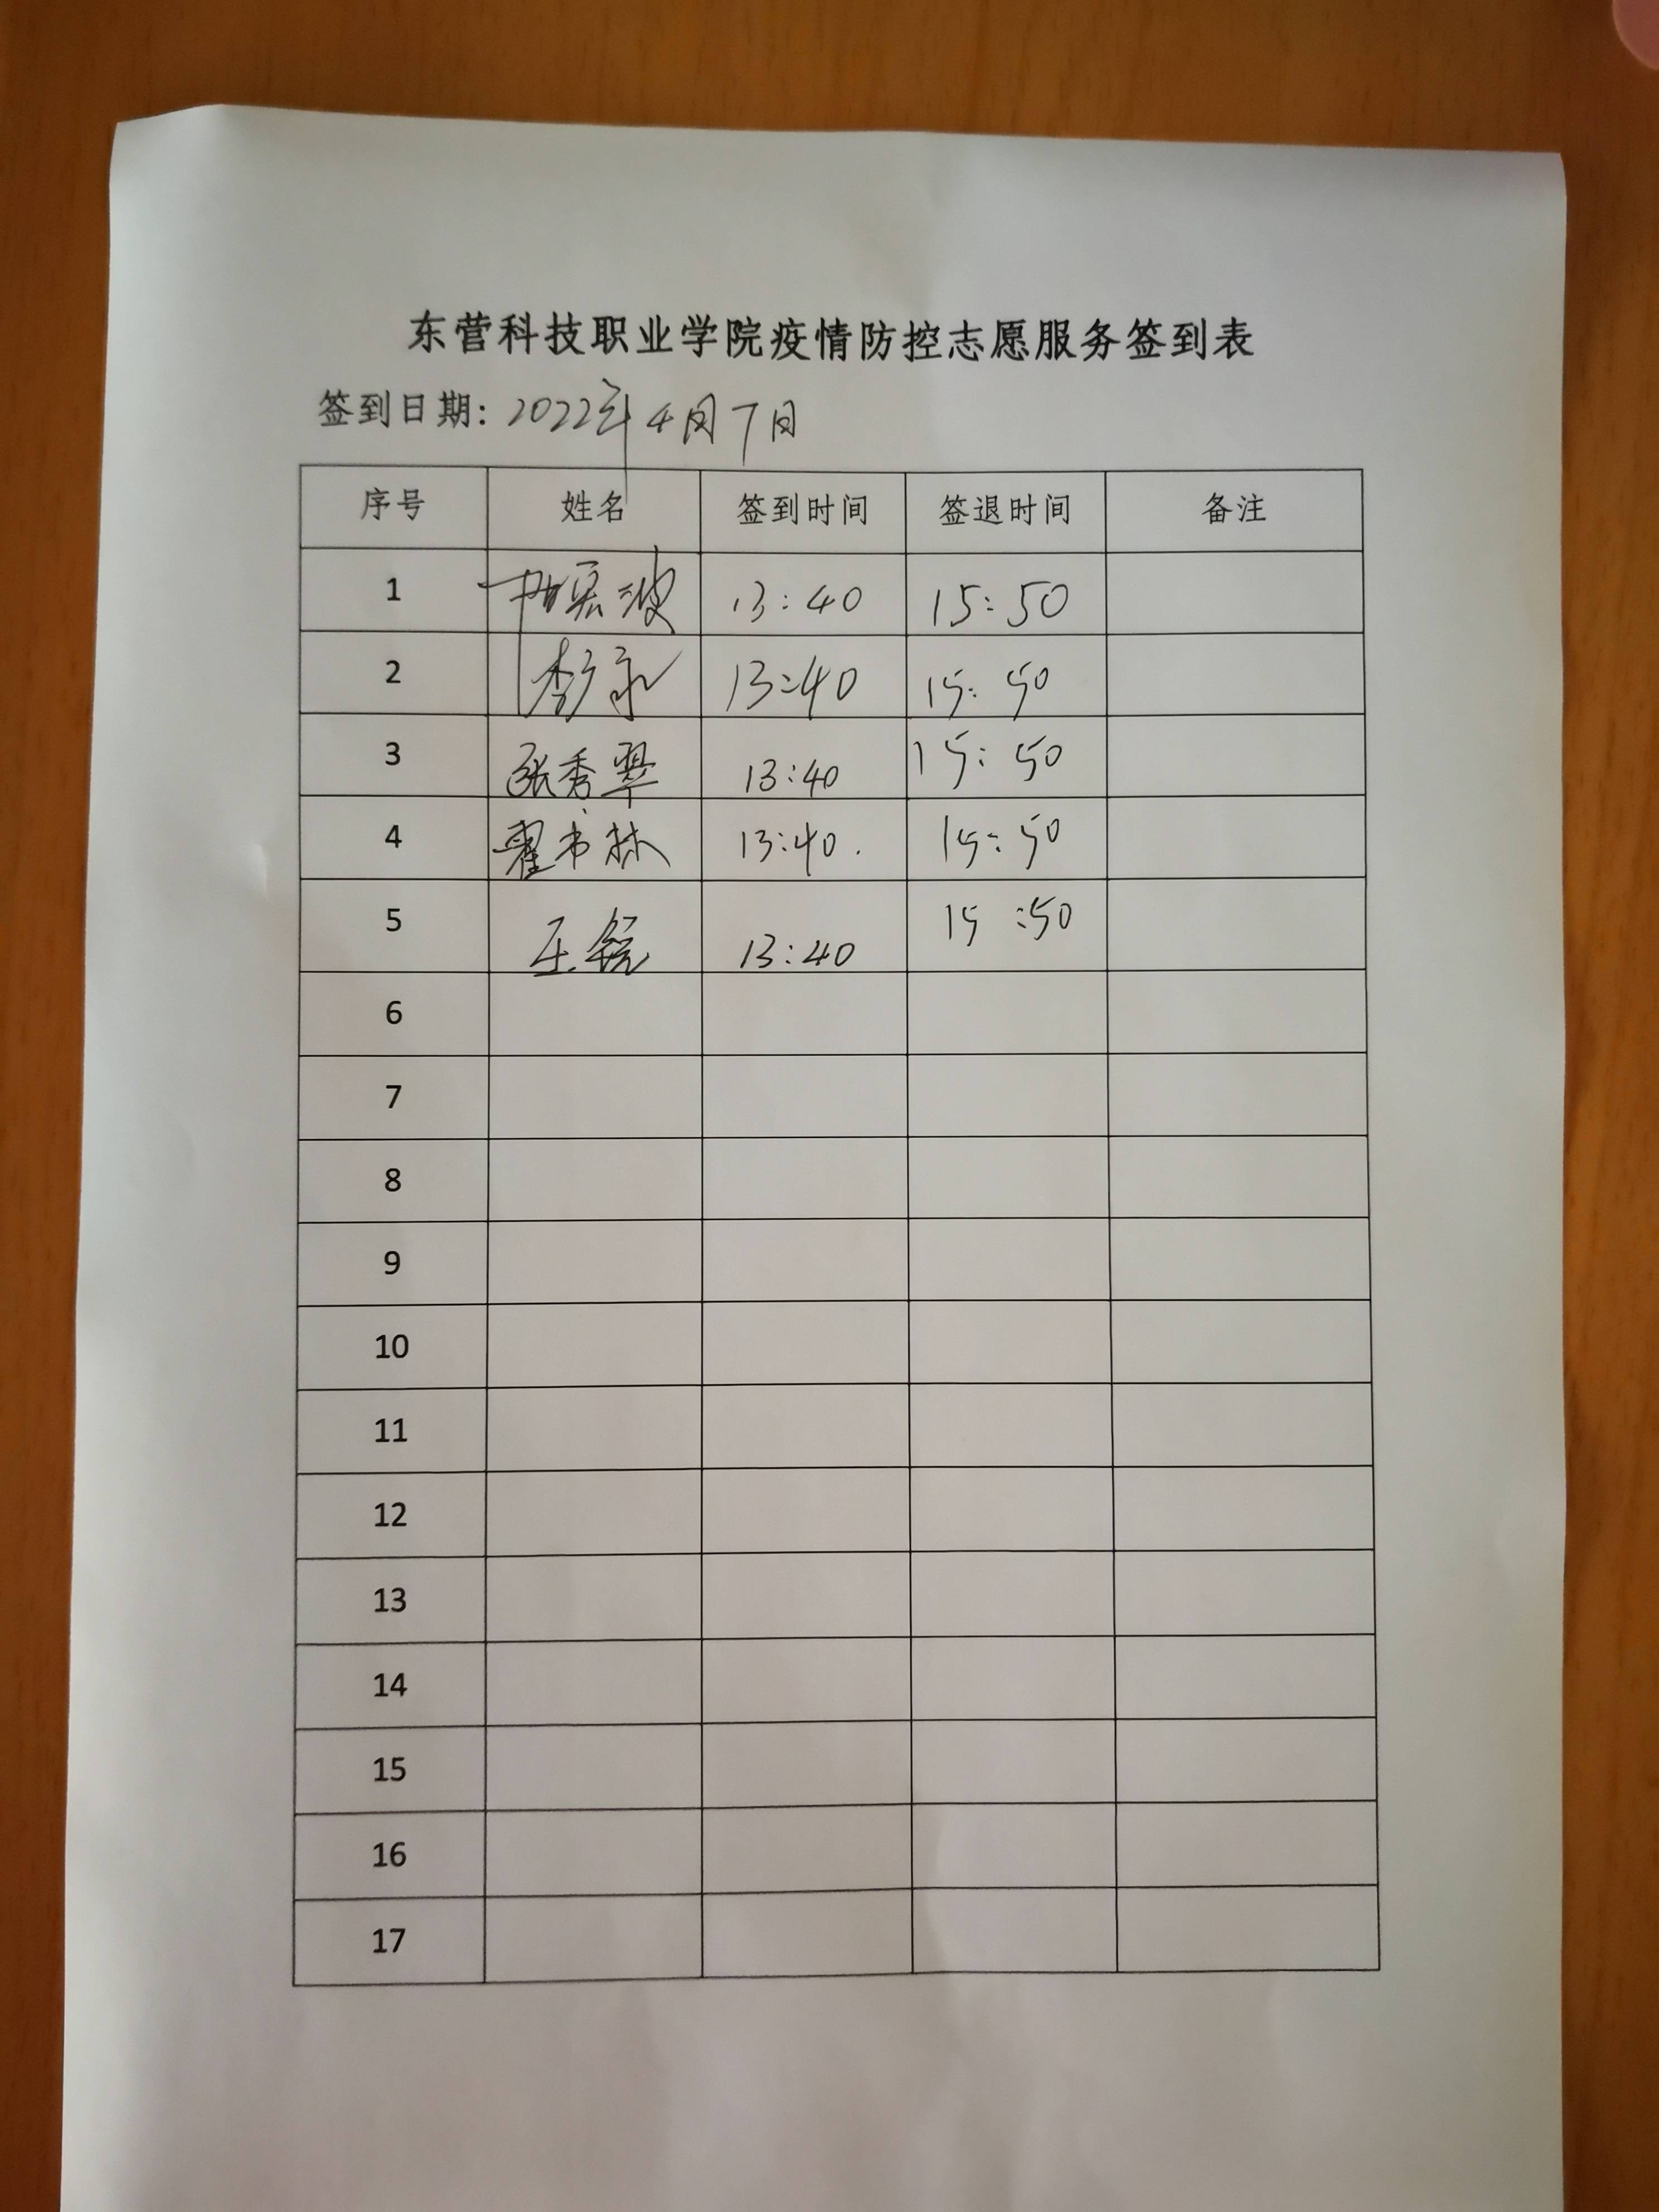 东营科技职业学院疫情防控志愿服务签到表
签到日期: 2022年4月7日
序号 姓名 签到时间 签退时间 备注
1 13:40 15:50
2 13:40 15:50
3 张秀翠 13:40 15:50
4 霍书林 13:40. 15:50
5 王锐 13:40 15:50
6
7
8
9
10
11
12
13
14
15
16
17